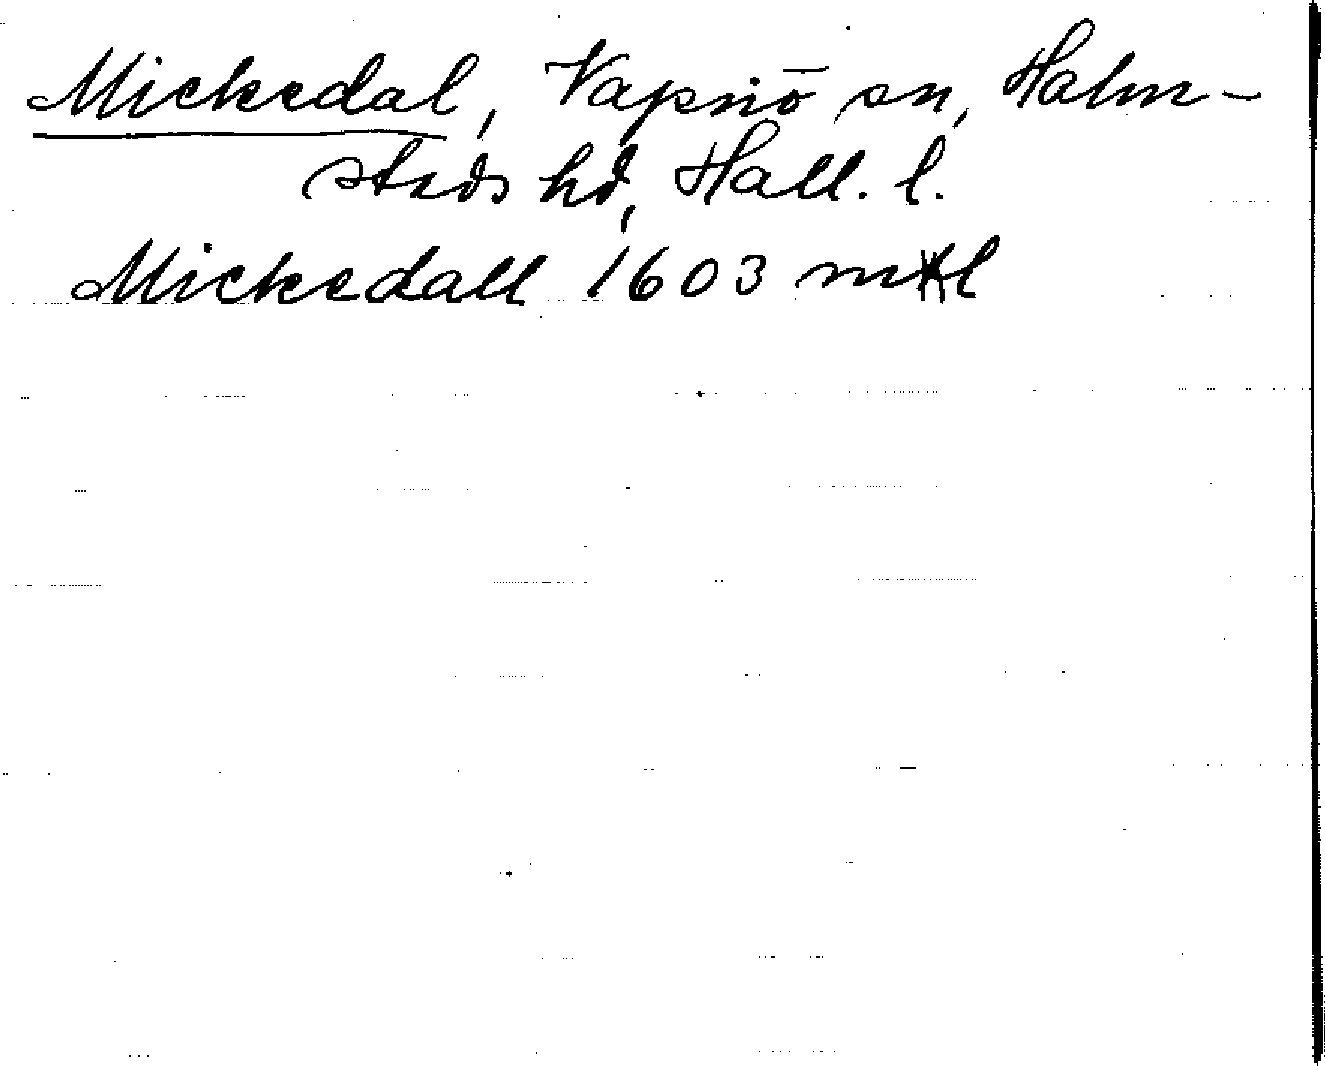 Mickedal, Vapnö sn, Halm-
stads hd, Hall. l.
Mickedall 1603 mtl